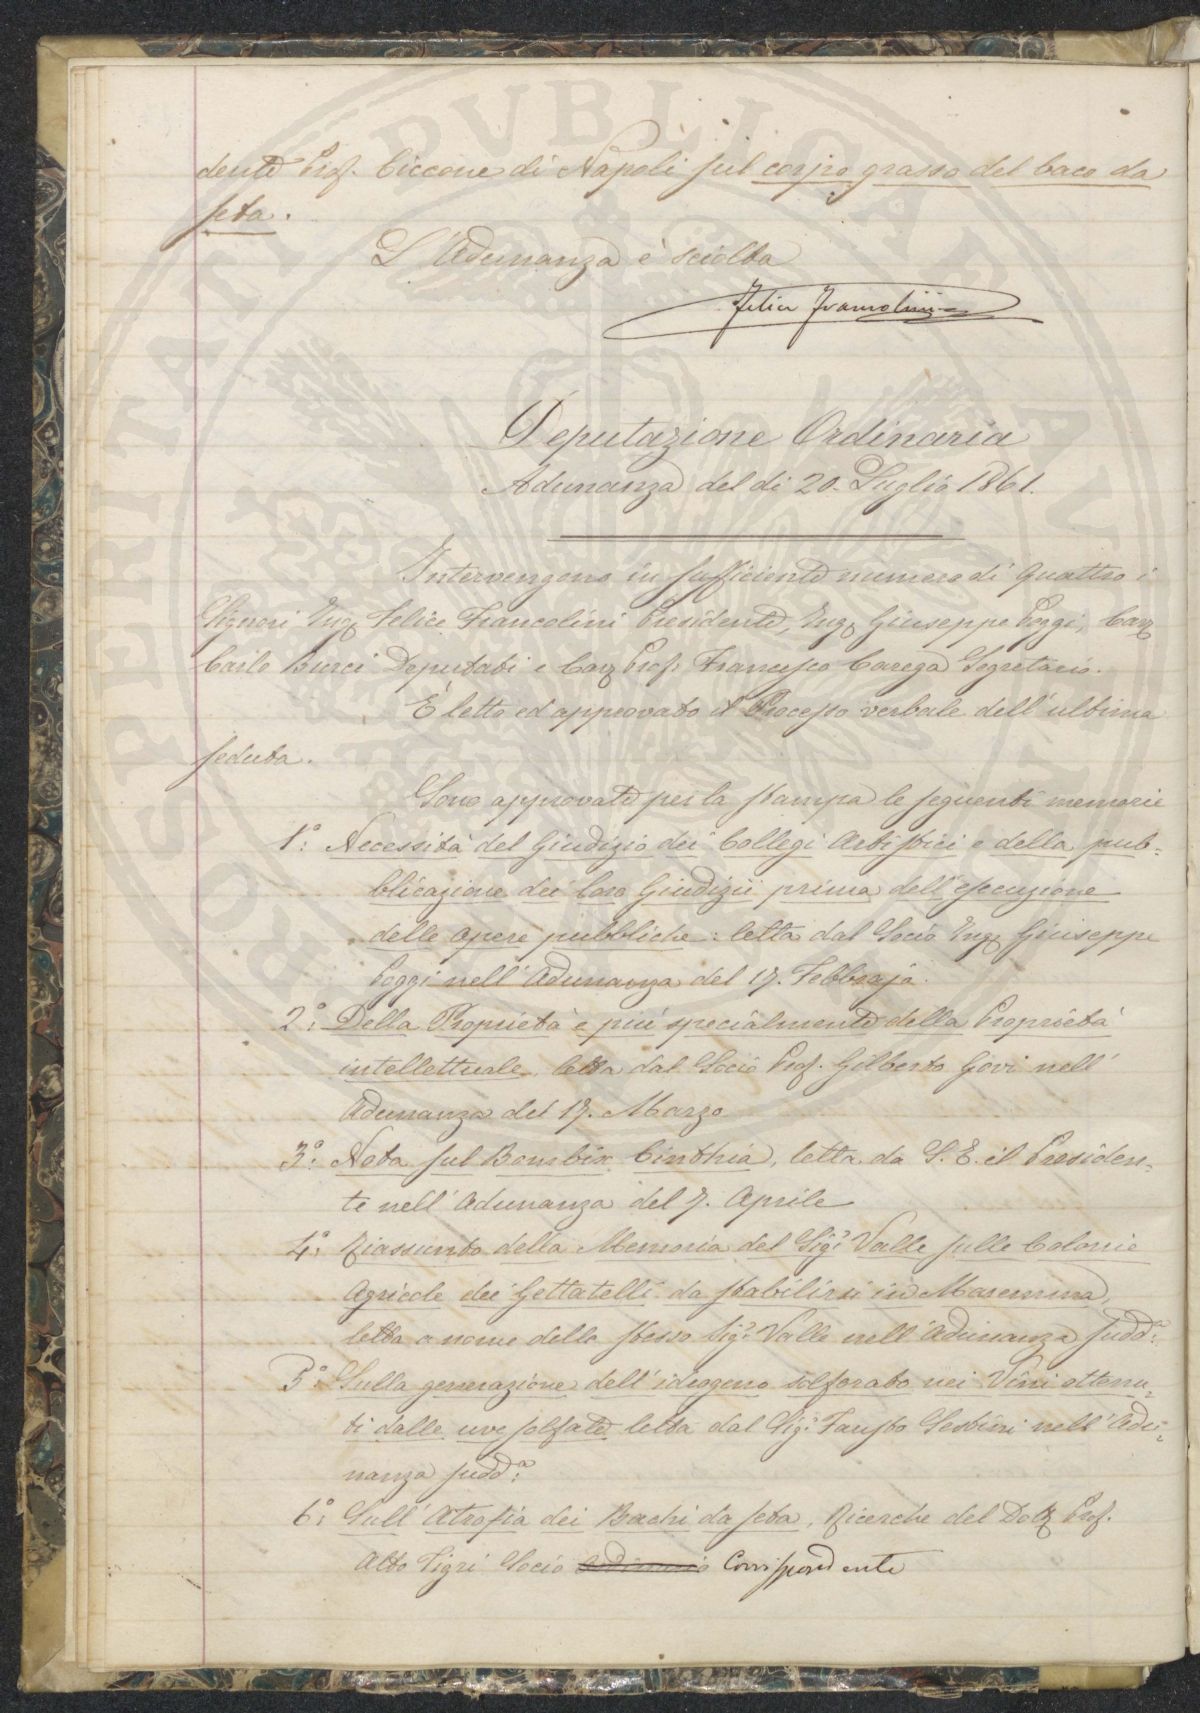 dente Prof. Ciccone di Napoli sul corpo grasso del baco da
seta.
L'Adunanza è sciolta
Felice Francolini
Deputazione Ordinaria
Adunanza del dì 20. Luglio 1861.
Intervengono in sufficiente numero di quattro i
Signori Ing. Felice Francolini Presidente, Ing. Giuseppe Poggi, Cav.
Carlo Burci Deputati e Cav. Prof. Francesco Carega Segretario.
È letto ed approvato il Processo verbale dell'ultima
seduta.
Sono approvate per la stampa le seguenti memorie
1.° Necessità del Giudizio dei Collegi Artistici e della pub-
blicazione dei loro Giudizii prima dell'esecuzione
delle opere pubbliche: letta dal Socio Ing. Giuseppe
Poggi nell'Adunanza del 17. Febbrajo.
2.° Della Proprietà e più specialmente della Proprietà
intellettuale, letta dal Socio Prof. Gilberto Govi nell'
Adunanza del 17. Marzo
3.° Nota sul Bombix Cinthia, letta da S. E. il Presiden-
te nell'Adunanza del 7. Aprile
4.° Riassunto della Memoria del Sig.r Valle sulle Colonie
Agricole dei Gettatelli da stabilirsi in Maremma,
letta a nome dello stesso Sig.r Valle nell'Adunanza sudd.a
5.° Sulla generazione dell'idrogeno solforato nei Vini ottenu-
ti dalle uve solfate letta dal Sig.r Fausto Sestini nell'Adu-
nanza sudd.a
6.° Sull'Atrofia dei Bachi da seta, Ricerche del Dott. Prof.
Atto Tigri Socio Corrispondente
PROSPERITATI PUBLICAE AUGENDAE